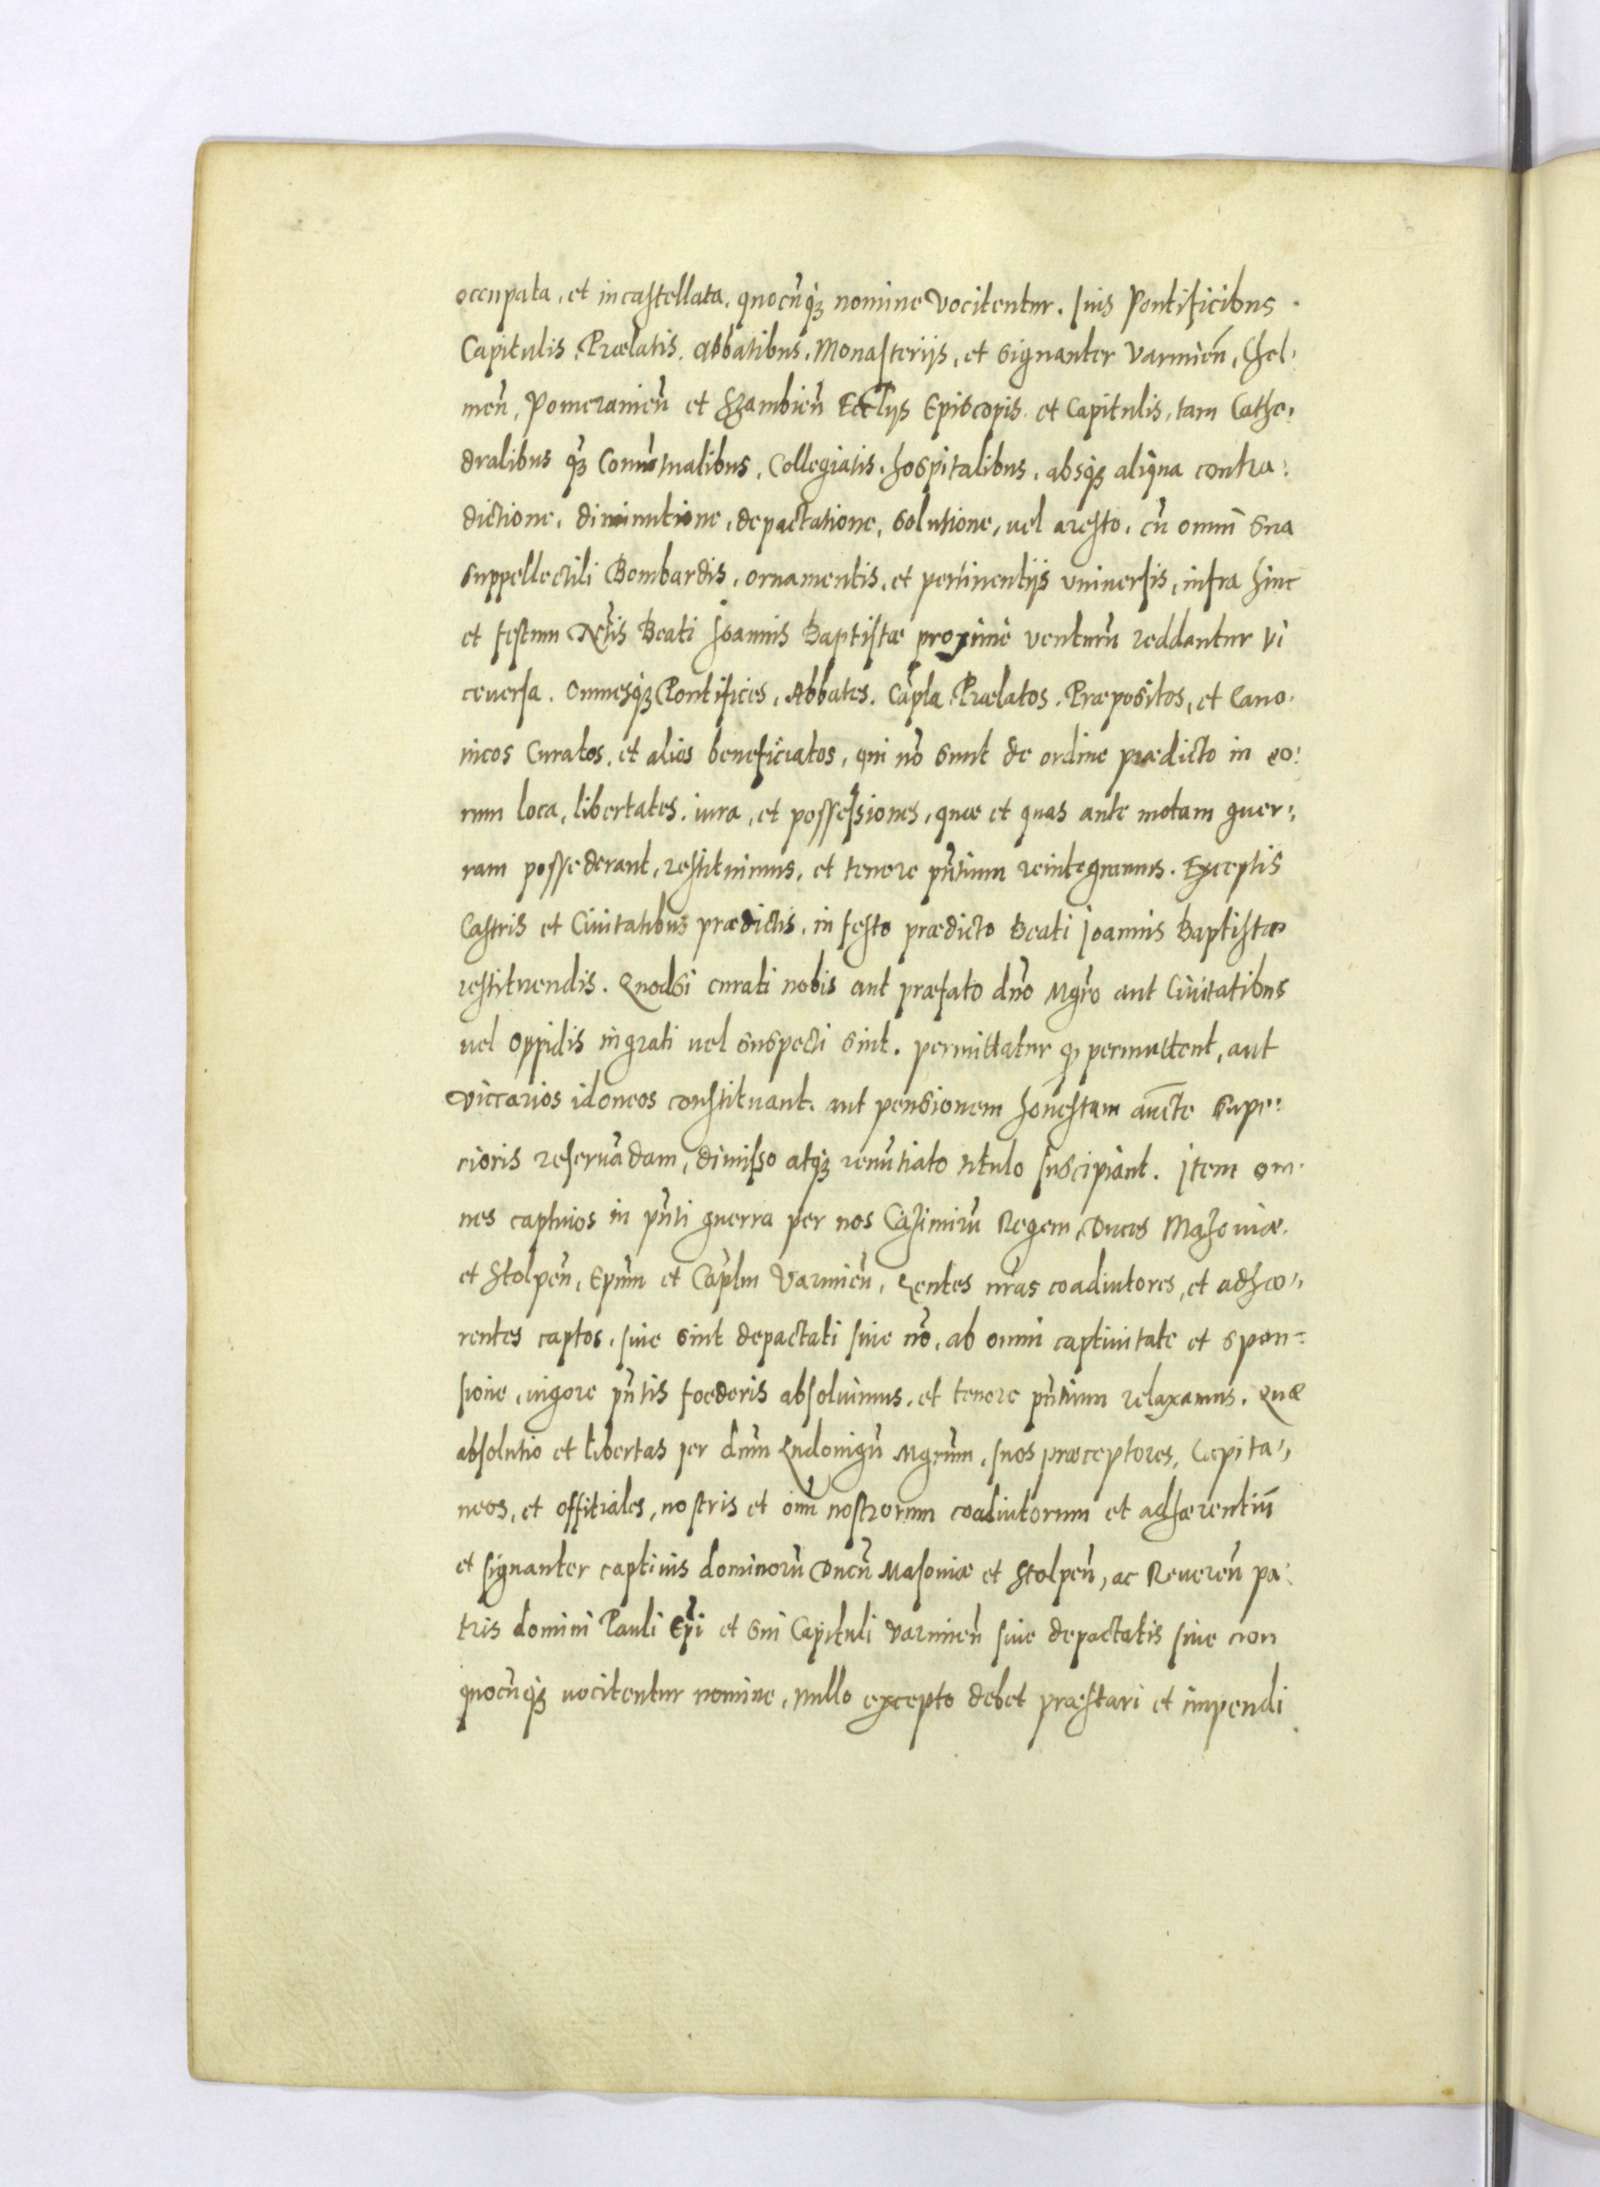 occupata, et incastellata, quocūq₃ nomine Vocitentur, suis Pontificibus
Capitulis, Prælatis, Abbatibus, Monasterijs, et signanter Varmieñ, Chel-
meñ, Pomeranieñ et Szambieñ Ecclijs Episcopis et Capitulis, tam Cathe-
dralibus q̄₃ Conūtualibus, Collegiatis, hospitalibus, absq₃ aliqua contra-
dictione, diminutione, depactatione, solutione, uel aresto, cū omni sua
suppellectili Bombardis, ornamentis, et pertinentijs vniuersis, infra hinc
et festum Nt̃is Beati Joannis Baptistæ proximè venturū reddantur vi
ceuersa. Omnesq₃ Pontifices, Abbates, Capl̃a, Prælatos, Præpositos, et Cano-
nicos Curatos, et alios beneficiatos, qui nō sunt de ordine prædicto in eo-
rum loca, libertates, iura, et possessiones, quæ et quas ante motam guer-
ram possederant, restituimus, et tenore pñtium reintegramus. Exceptis
Castris et Ciuitatibus prædictis, in festo prædicto Beati Joannis Baptistæ
restituendis. Quodsi curati nobis aut præfato dño Mgr̃o aut Ciuitatibus
uel oppidis ingrati uel suspecti sint, permittatur q̃ permuttent, aut
viccarios idoneos constituant, aut pensionem honestam auc̃te supe-
rioris reseruādam, dimisso atq₃ renūtiato titulo suscipiant. Item om-
nes captiuos in pñti guerra per nos Cazimirū Regem, Duces Mazouiæ
et Stolpeñ, Ep̃um et Cap̃lm Varmieñ, gentes nr̃as coadiutores, et adhæ-
rentes captos, siue sint depactati siue nō, ab omni captiuitate et spon-
sione, uigore pñtis foederis absoluimus, et tenore pñtium relaxamus. Quæ
absolutio et libertas per dñm Ludouigū Mgr̃um, suos præceptores, Capita-
neos, et offitiales, nostris et om̃ nostrorum coadiutorum et adhærentiū
et signanter captiuis dominorū Ducū Masouiæ et Stolpeñ, ac Reuereñ pa-
tris domini Pauli Ep̃i et sui Capituli Varmieñ siue depactatis siue non
quocūq₃ uocitentur nomine, nullo excepto debet præstari et impendi